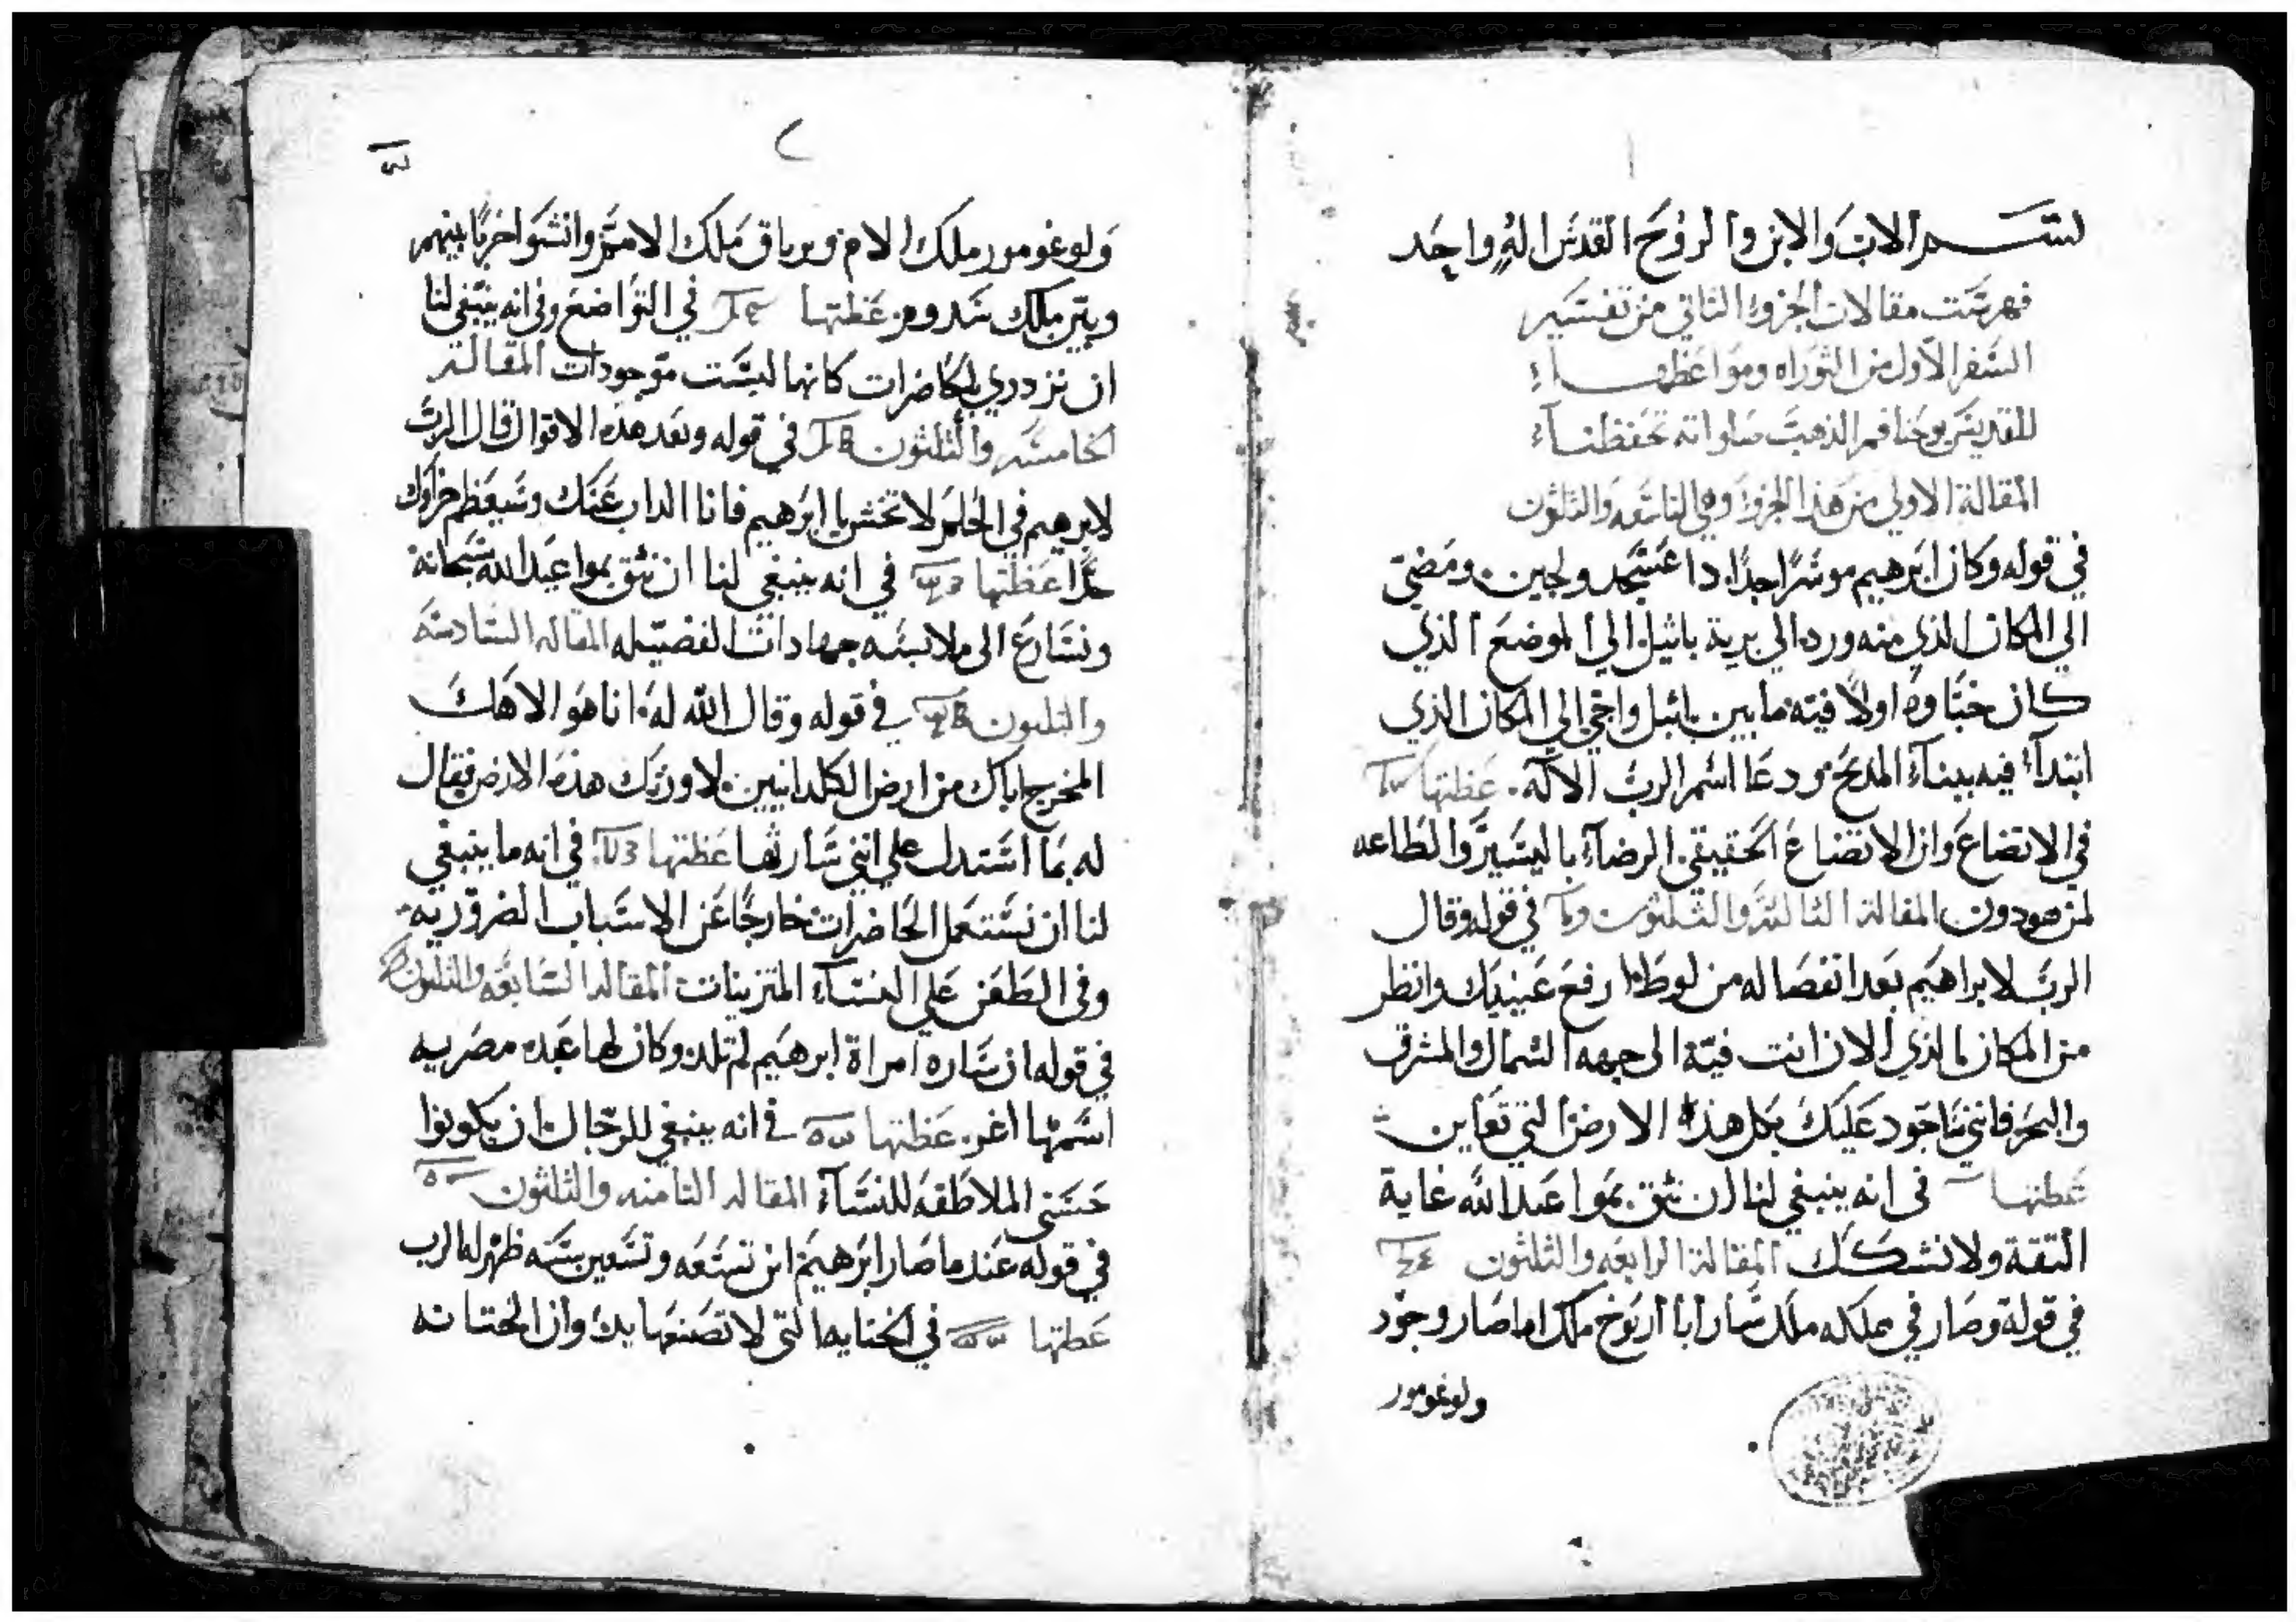 بسم الاب والابن والروح القدس اله واحد
فهرست مقالات الجزوء الثاني من تفسير
السفر الاول من التوراه ومواعظها
للقديس يوحنا فم الذهب صلواته تحفظنا
المقالة الاولي من هذا الجزوء وهي الثانيه والثلثون
في قوله وكان ابرهيم موسرا جدا دا عسجد ولجين ومضي
الي المكان الذي منه ورد الي برية باثيل الي الموضع الذي
كان خباوه اولا فيه ما بين باثيل واجي الي المكان الذي
ابتداء فيه ببناء المدبح ودعا اسم الرب الاله عظتها
في الاتضاع وان الاتضاع الحقيقي الرضاء باليسير والطاعه
لمن هو دون المقالة الثالثه والثلثون في قوله وقال
الرب لابراهيم بعد انفصاله من لوط ارفع عينيك وانظر
من المكان الذي الان انت فيه الي جهه الشمال والمشرق
والبحر فانني ساجود عليك بكل هذا الارض التي تعاين
عظتها في انه ينبغي لنا ان نثق بمواعد الله غاية
الثقة ولا نشكك المقالة الرابعه والثلثون
في قولة وصار في مملكه ملك شنار اباأريوخ ملك اماصار وجود
ولوغومور
٢
ولوغومور ملك الام وبرباق ملك الامم وانشوا حربا بينهم
وبين ملك سدوم عظتها في التواضع وفي انه ينبغي لنا
ان نزدري بالحاضرات كانها ليست موجودات المقالة
الخامسه والثلثون في قوله وبعد هذه الاقوال قال الرب
لابرهيم في الحلم لا تخش يا ابرهيم فانا الداب عنك وسيعظم جزاوك
جدا عظتها في انه ينبغي لنا ان نثق بمواعيد الله سبحانه
ونسارع الي ملابسه جهادات الفضيله المقاله السادسه
والثلثون في قوله وقال الله له انا هو الاهك
المخرج اياك من ارض الكلدانيين لاورثك هذه الارض فقال
له بما استدل علي انني سارثها عظتها في انه ما ينبغي
لنا ان نستعمل الحاضرات خارجا عن الاسباب الضروريه
وفي الطعن علي النساء المتزينات المقاله السابعه والثلثون
في قوله ان ساره امراة ابرهيم لم تلد وكان لها عبده مصريه
اسمها اغر عظتها في انه ينبغي للرجال ان يكونوا
حسني الملاطفه للنساء المقاله الثامنه والثلثون
في قوله عند ما صار ابرهيم ابن تسعه وتسعين سنه ظهر له الرب
عظتها في الختايه التي لا تصنعها يد وان الختانه